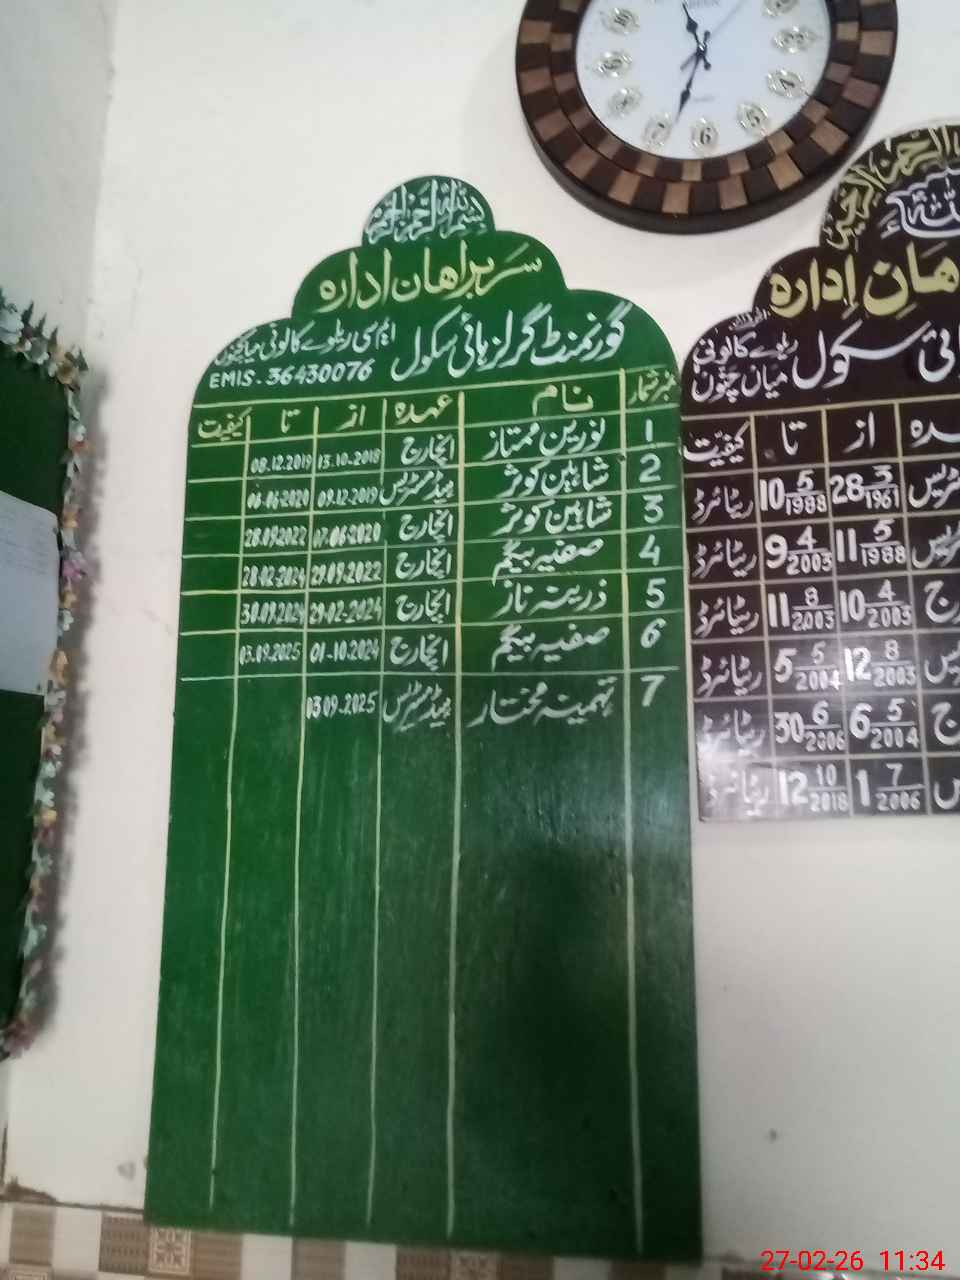 بسم اللہ الرحمن الرحیم
سربراہان ادارہ
گورنمنٹ گرلز ہائی سکول ایم سی ریلوے کالونی میانچنوں
EMIS. 36430076
نمبر شمار نام عہدہ از تا کیفیت
1 نورین ممتاز انچارج 13.10.2018 08.12.2019
2 شاہین کوثر ہیڈ مسٹریس 09.12.2019 06.06.2020
3 شاہین کوثر انچارج 07.06.2020 28.09.2022
4 صفیہ بیگم انچارج 29.09.2022 28.02.2024
5 ذرینہ ناز انچارج 29-02-2024 30.09.2024
6 صفیہ بیگم انچارج 01-10.2024 03.09.2025
7 تہمینہ مختار ہیڈ مسٹریس 03 09.2025
الرحمن الرحیم
ہانِ اِدارہ
ئی سکول ریلوے کالونی
میاں چنوں
دہ از تا کیفیت
ٹریس 28 3/1961 10 5/1988 ریٹائرڈ
ٹریس 11 5/1988 9 4/2003 ریٹائرڈ
رج 10 4/2003 11 8/2003 ریٹائرڈ
یس 12 8/2003 5 5/2004 ریٹائرڈ
ج 6 5/2004 30 6/2006 ریٹائرڈ
س 1 7/2006 12 10/2018 ریٹائرڈ
7 6 5
27-02-26 11:34